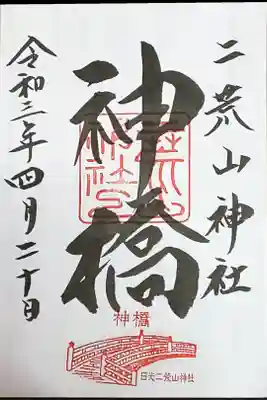 二荒山神社
神橋
令和三年四月二十日
神橋
日光二荒山神社